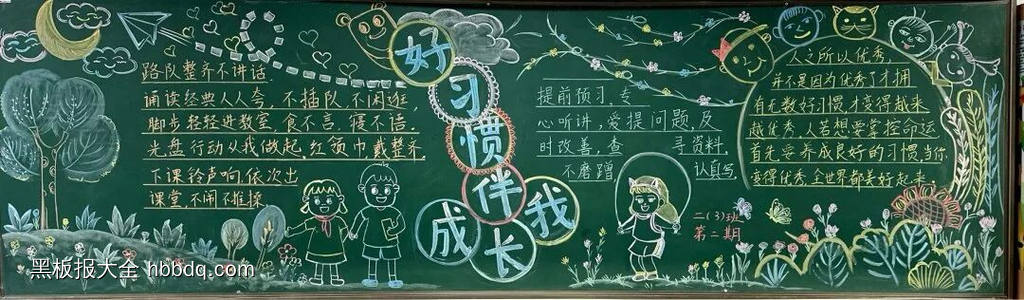 好习惯伴我成长
路队整齐不讲话
诵读经典人人夸，不插队，不闲逛，
脚步轻轻进教室，食不言，寝不语。
光盘行动从我做起，红领巾戴整齐，
下课铃声响，依次出
课堂，不闹不推操
提前预习，专
心听讲，爱提问题，及
时改善，查 寻资料，
不磨蹭， 认真写，
人之所以优秀，
并不是因为优秀了才拥
有无数好习惯，才变得越来
越优秀，人若想要掌控命运
首先要养成良好的习惯，当你
变得优秀，全世界都美好起来。
二(3)班
第二期
黑板报大全 hbbdq.com